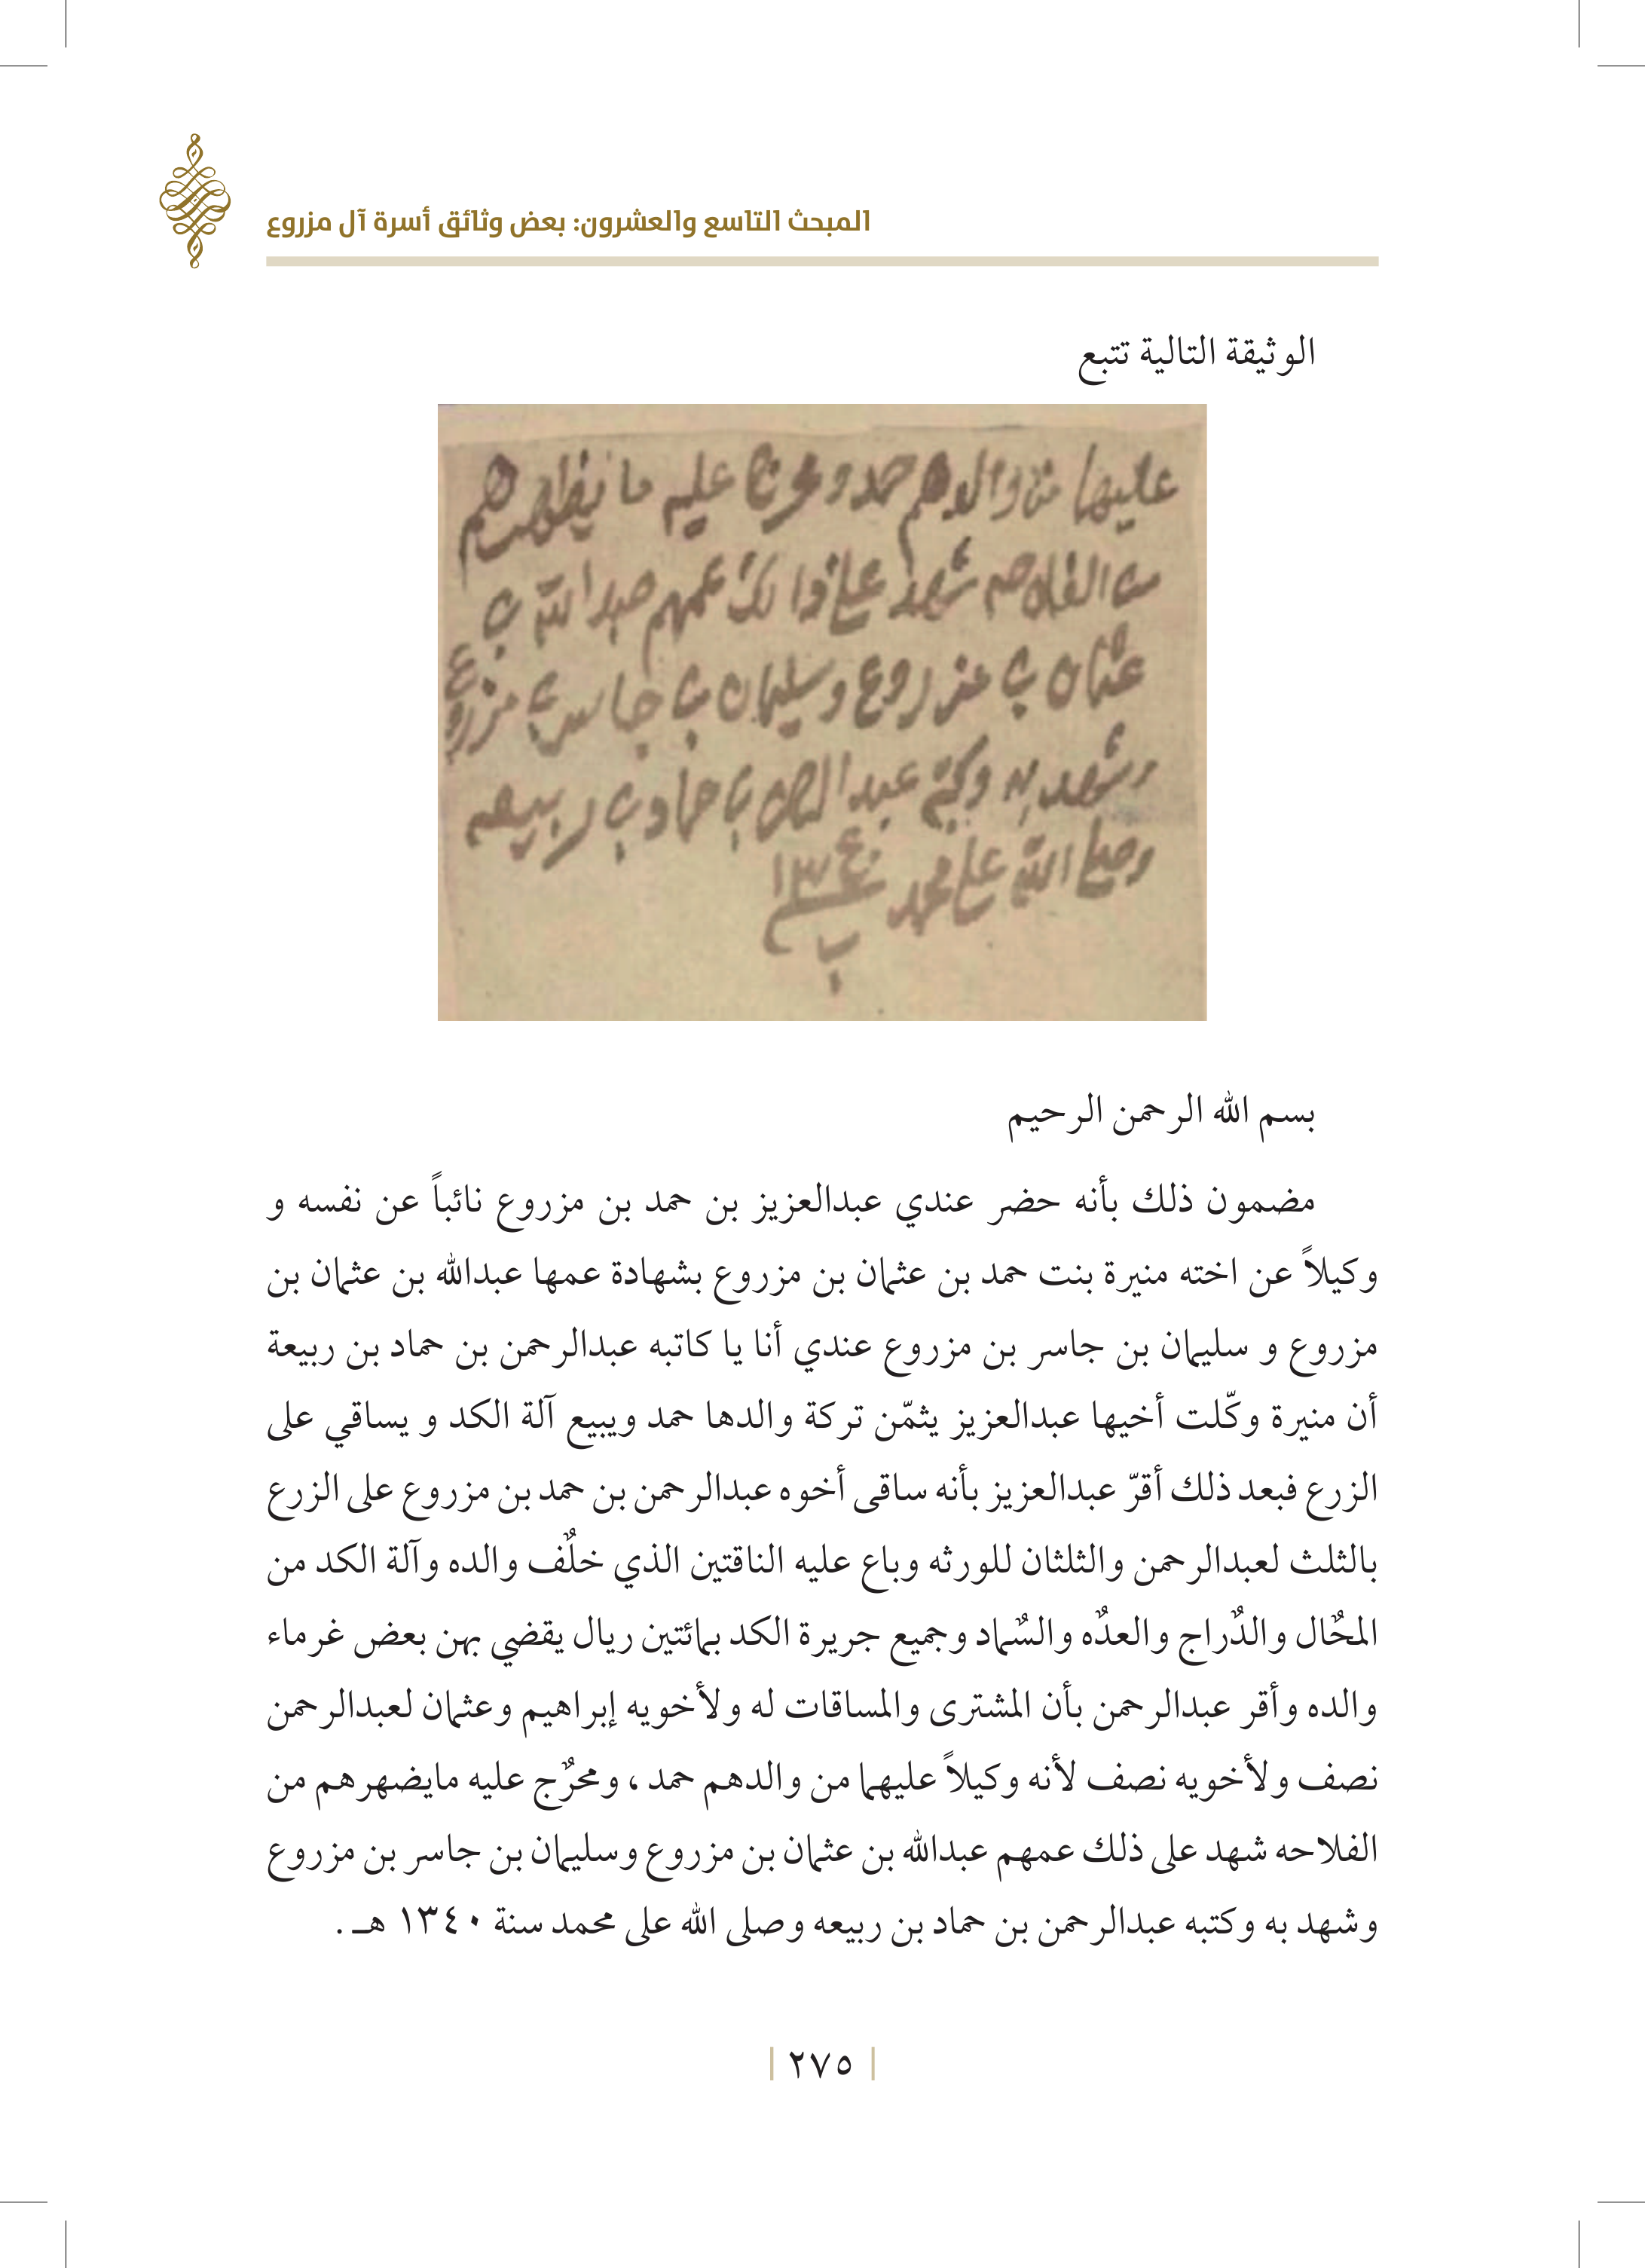 المبحث التاسع والعشرون: بعض وثائق أسرة آل مزروع
الوثيقة التالية تتبع
عليهما من والدهم حمد ومحرج عليه ما يظهرهم
من الفلاحه شهد علي ذالك عمهم عبدالله بن
عثمان بن مزروع وسليمان بن جاسر بن مزروع
وشهد به وكتبه عبدالرحمن بن حماد بن ربيعه
وصلى الله علي محمد
بسم الله الرحمن الرحيم
مضمون ذلك بأنه حضر عندي عبدالعزيز بن حمد بن مزروع نائباً عن نفسه و
وكيلاً عن اخته منيرة بنت حمد بن عثمان بن مزروع بشهادة عمها عبدالله بن عثمان بن
مزروع و سليمان بن جاسر بن مزروع عندي أنا يا كاتبه عبدالرحمن بن حماد بن ربيعة
أن منيرة وكّلت أخيها عبدالعزيز يثمّن تركة والدها حمد ويبيع آلة الكد و يساقي على
الزرع فبعد ذلك أقرّ عبدالعزيز بأنه ساقى أخوه عبدالرحمن بن حمد بن مزروع على الزرع
بالثلث لعبدالرحمن والثلثان للورثه وباع عليه الناقتين الذي خلٌف والده وآلة الكد من
المحٌال والدٌراج والعدٌه والسٌماد وجميع جريرة الكد بمائتين ريال يقضي بهن بعض غرماء
والده وأقر عبدالرحمن بأن المشترى والمساقات له ولأخويه إبراهيم وعثمان لعبدالرحمن
نصف ولأخويه نصف لأنه وكيلاً عليهما من والدهم حمد ، ومحرٌج عليه مايضهرهم من
الفلاحه شهد على ذلك عمهم عبدالله بن عثمان بن مزروع وسليمان بن جاسر بن مزروع
وشهد به وكتبه عبدالرحمن بن حماد بن ربيعه وصلى الله على محمد سنة ١٣٤٠ هـ .
٢٧٥